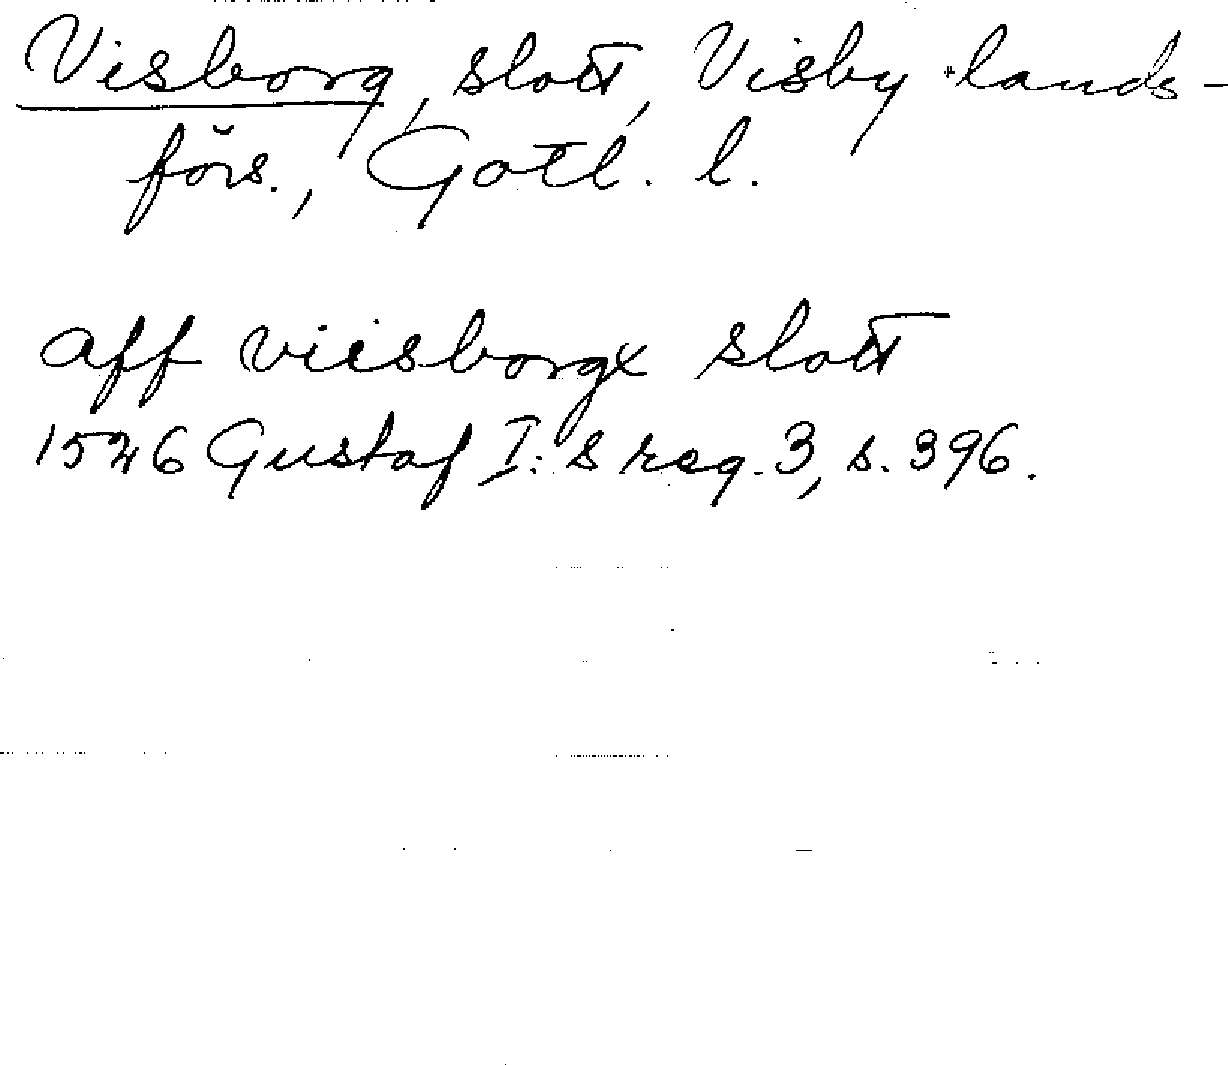 Visborg, slott, Visby lands-
förs., Gotl. l.
aff viisborgx slott
1526 Gustaf I:s reg. 3, s. 396.